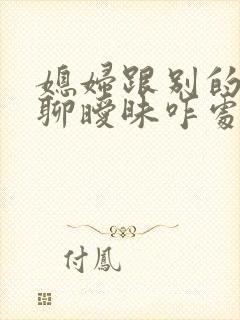 媳婦跟別的
聊曖昧咋處
付鳳